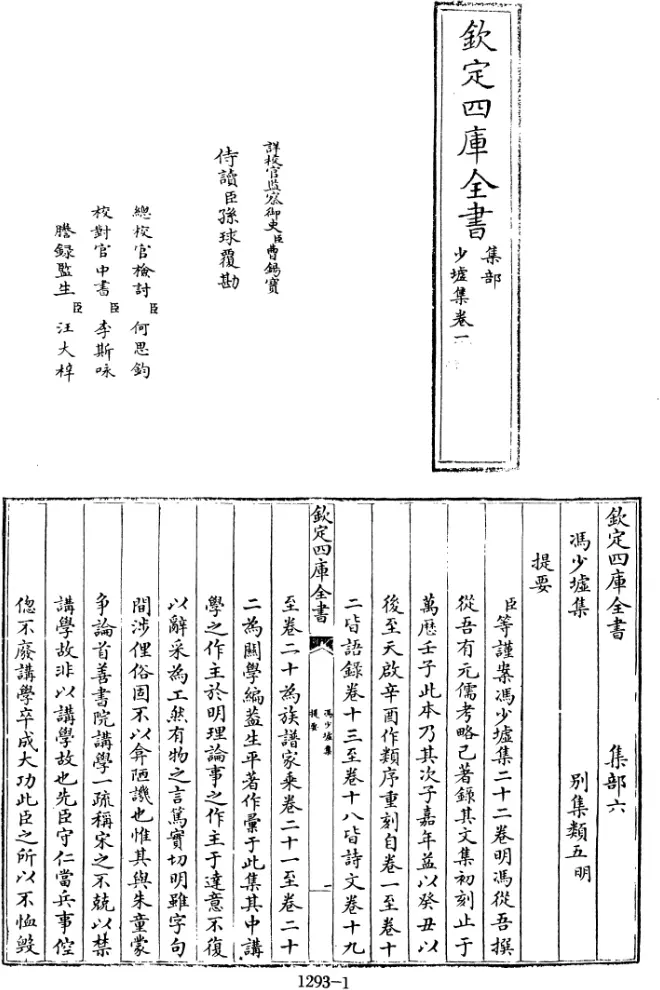 欽定四庫全書
集部
少墟集卷一
詳校官監察御史臣曹錫寶
侍讀臣孫球覆勘
總校官檢討臣何思鈞
校對官中書臣李斯咏
謄録監生臣汪大梓
欽定四庫全書 集部六
馮少墟集 别集類五明
提要
臣等謹案馮少墟集二十二卷明馮從吾撰
從吾有元儒考略已著録其文集初刻止于
萬厯壬子此本乃其次子嘉年益以癸丑以
後至天啟辛酉作類序重刻自卷一至卷十
二皆語録卷十三至卷十八皆詩文卷十九
欽定四庫全書
馮少墟集
提要
一
至卷二十為族譜家乘卷二十一至卷二十
二為關學編蓋生平著作彙于此集其中講
學之作主於明理論事之作主于達意不復
以辭采為工然有物之言篤實切明雖字句
間涉俚俗固不以弇陋譏也惟其與朱童蒙
争論首善書院講學一疏稱宋之不兢以禁
講學故非以講學故也先臣守仁當兵事倥
偬不廢講學卒成大功此臣之所以不恤毀
1293-1